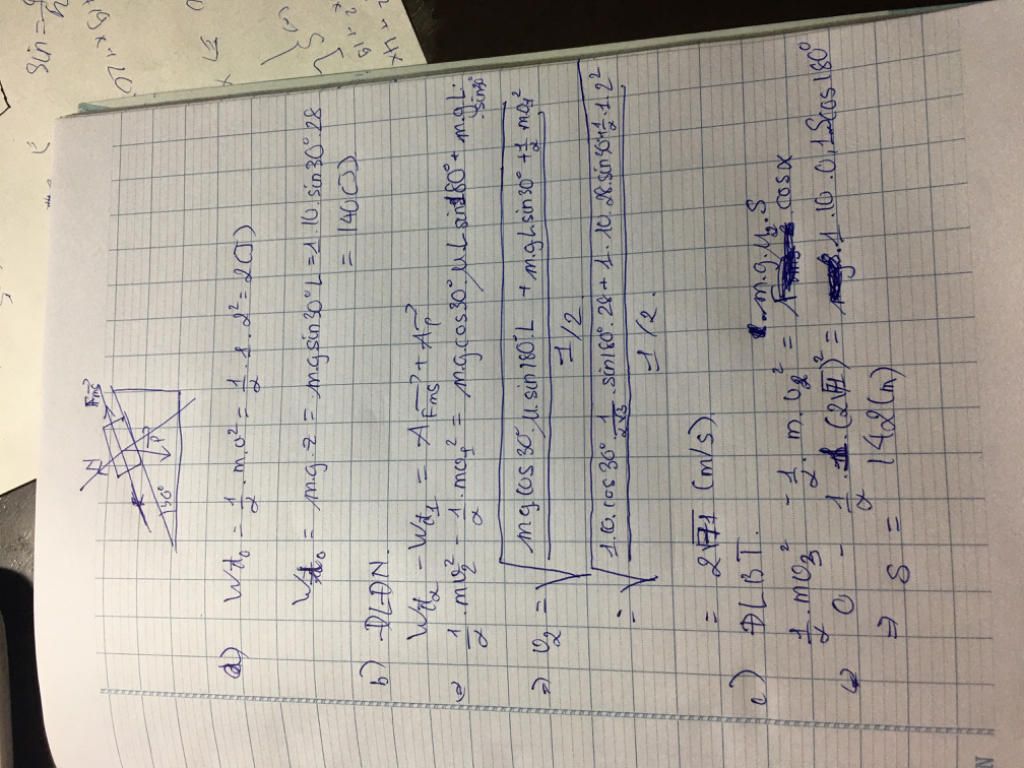 N
Fms
P
30°
a) Wđ₀ = 1/2 . m.v² = 1/2 . 1 . 2² = 2(J)
Wt₀ = mg.z = mg sin30° L = 1.10.sin30°.28
= 140(J)
b) ĐLĐN.
Wđ₂ - Wđ₁ = A Fms + A P
<=> 1/2 . mv₂² - 1/2 . mv₁² = mg.cos30°.μ.L.sin180° + m.g.L.sin30°
=> v₂ = √((mg cos30°.μ sin180°.L + m.gL sin30° + 1/2 mv₁²) / (1/2))
= √((1.10.cos30°.1/(2√3).sin180°.28 + 1.10.28.sin30° + 1/2.1.2²) / (1/2))
= 2√71 (m/s)
c) ĐLBT.
1/2 mv₃² - 1/2 . m.v₂² = m.g.μ₂.S cosα
<=> 0 - 1/2 . 1 . (2√71)² = 1.10.0,1.S cos180°
=> S = 142(m)
sin =
N